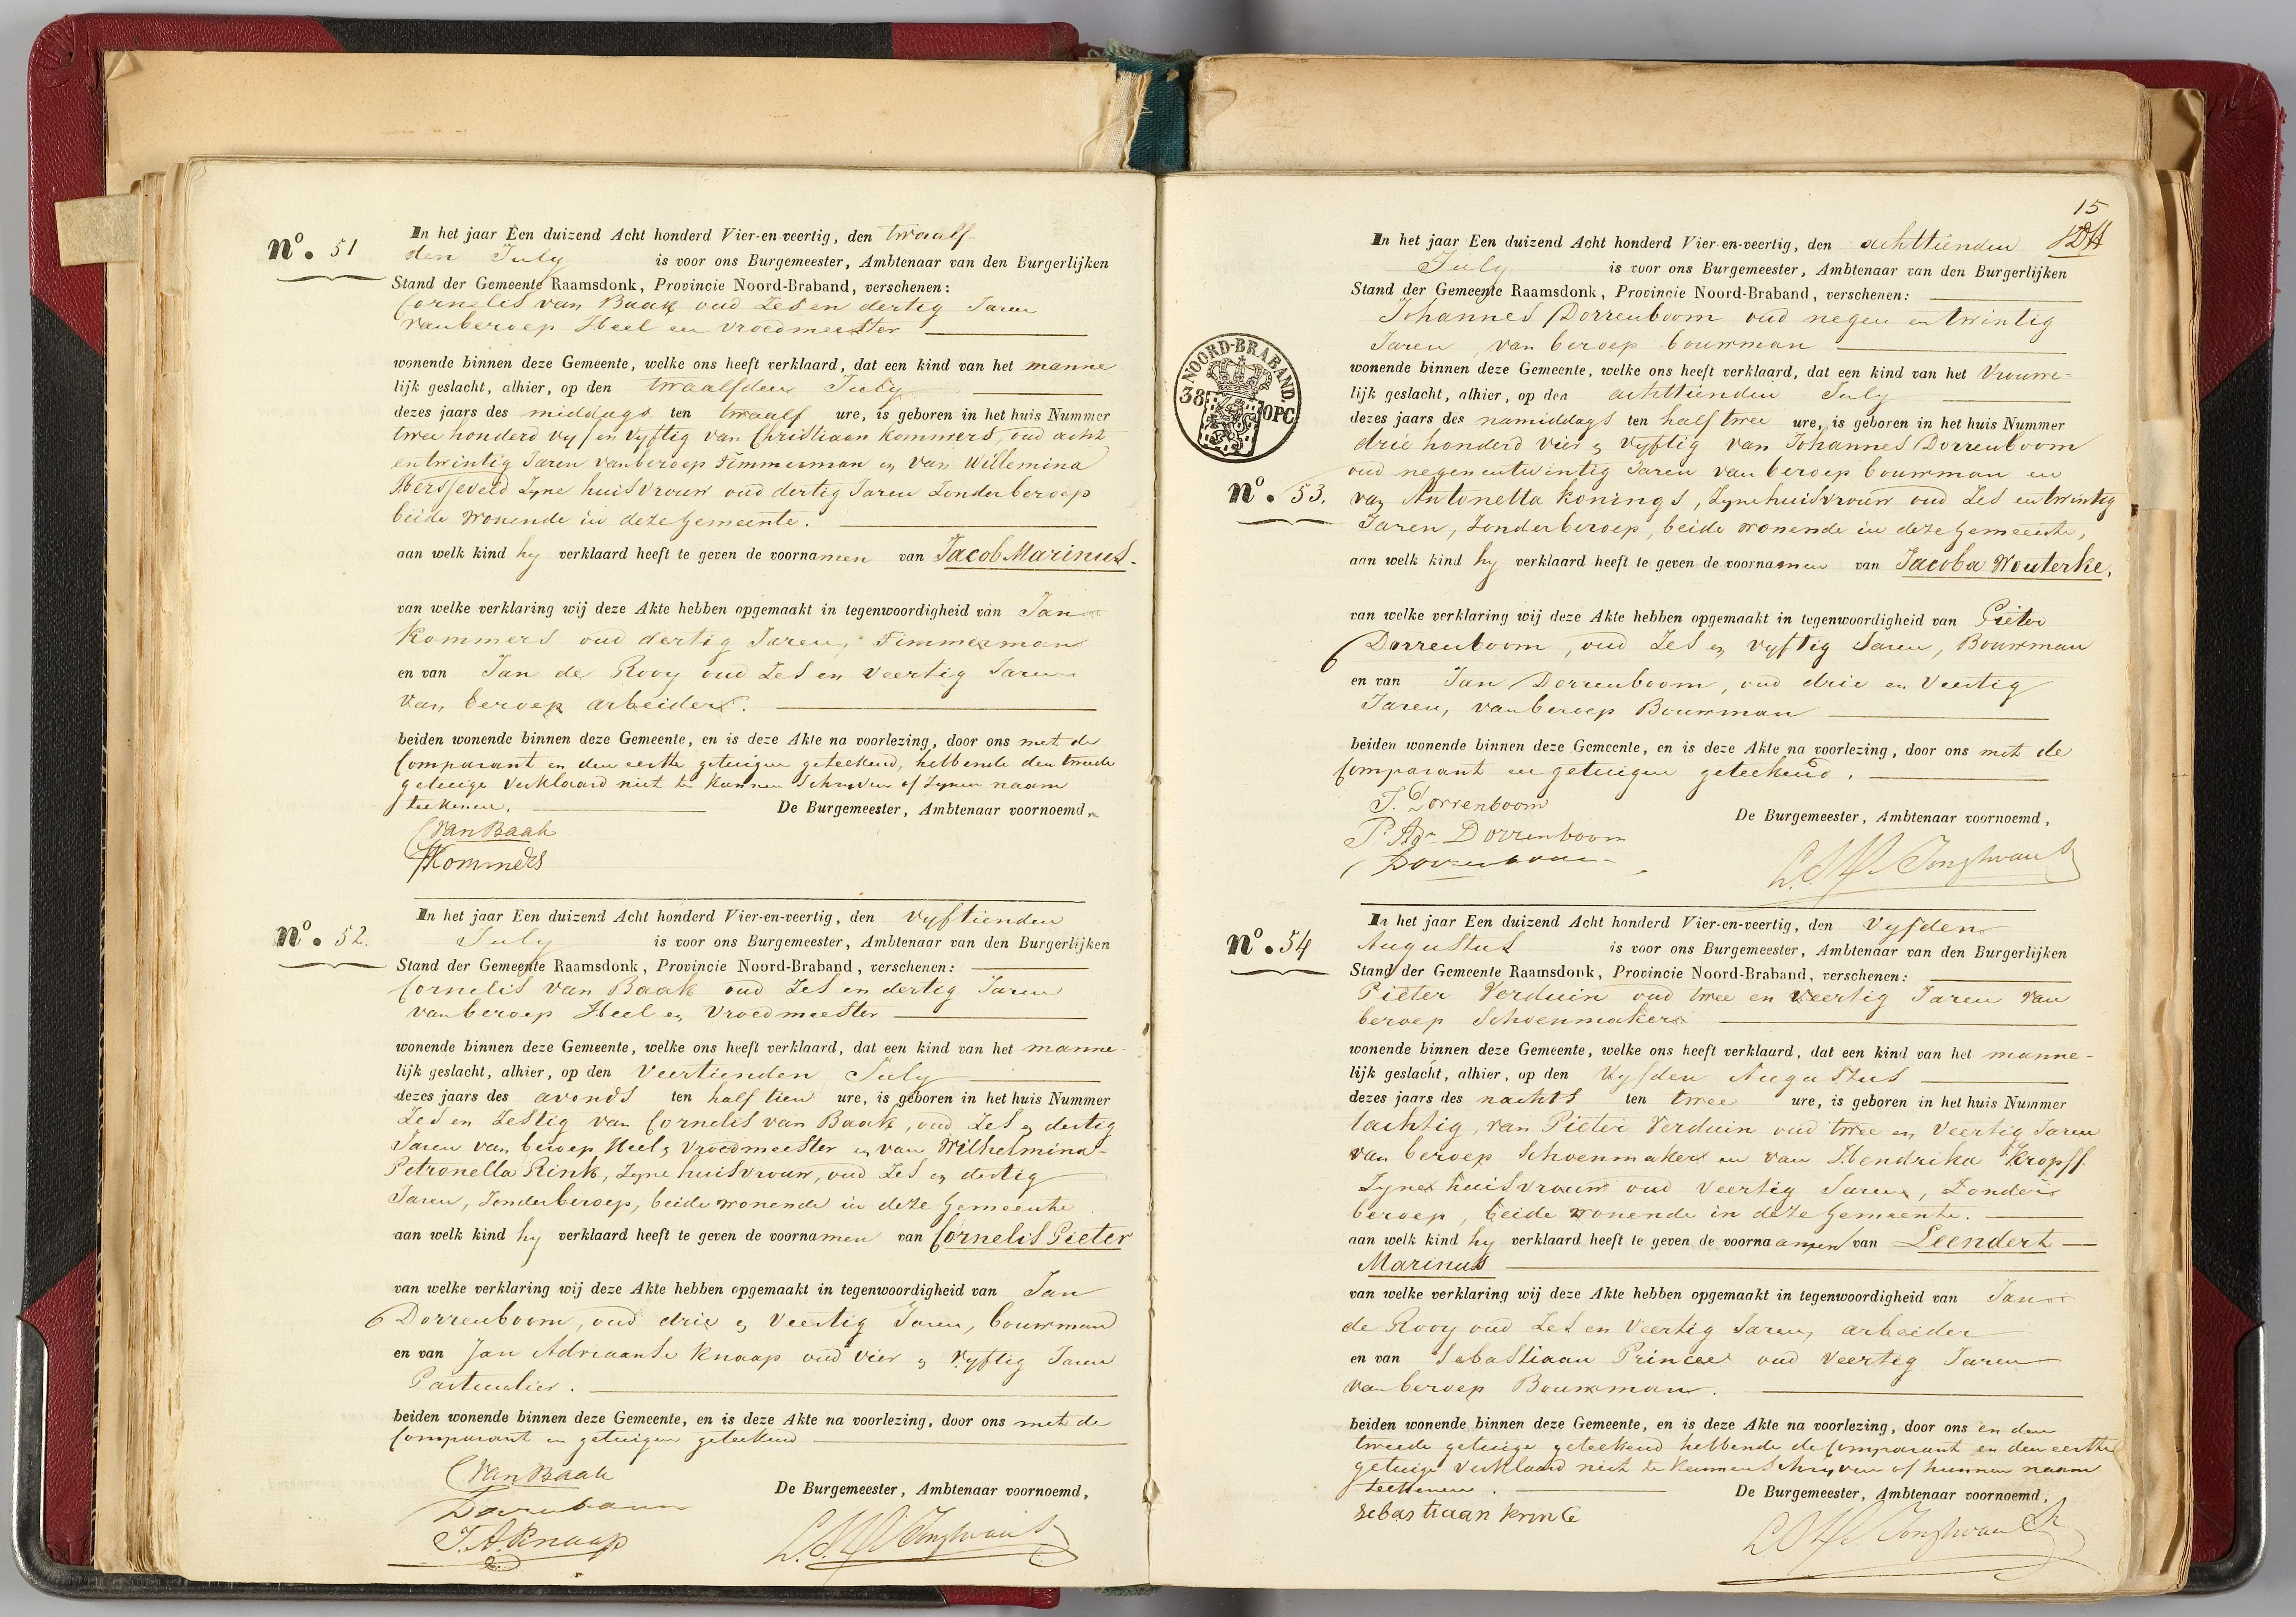 No. 51
In het jaar Een duizend Acht honderd Vier-en-veertig, den twaalf-
den July is voor ons Burgemeester, Ambtenaar van den Burgerlijken
Stand der Gemeente Raamsdonk, Provincie Noord-Braband, verschenen:
Cornelis van Baak oud Zes en dertig Jaren
van beroep Heel en vroedmeester
wonende binnen deze Gemeente, welke ons heeft verklaard, dat een kind van het manne
lijk geslacht, alhier, op den twaalfden July
dezes jaars des middags ten twaalf ure, is geboren in het huis Nummer
twee honderd vyf en vyftig van Christiaan Kommers, oud acht
en twintig Jaren van beroep Timmerman en van Willemina
zyne huisvrouw oud dertig Jaren Zonder beroep
beide wonende in deze Gemeente.
aan welk kind hy verklaard heeft te geven de voornamen van Jacob Marinus.
van welke verklaring wij deze Akte hebben opgemaakt in tegenwoordigheid van Jan
Kommers oud dertig Jaren, Timmerman
en van Jan de Rooy oud Zes en Veertig Jaren
van beroep arbeider.
beiden wonende binnen deze Gemeente, en is deze Akte na voorlezing, door ons met de
Comparant en den eerste getuigen geteekend, hebbende den tweede
getuige verklaard niet te kunnen Schryven of Zynen naam
teekenen. De Burgemeester, Ambtenaar voornoemd,
C van Baak
JKommers
No. 52.
In het jaar Een duizend Acht honderd Vier-en-veertig, den vyftienden
July is voor ons Burgemeester, Ambtenaar van den Burgerlijken
Stand der Gemeente Raamsdonk, Provincie Noord-Braband, verschenen:
Cornelis van Baak oud Zes en dertig Jaren
van beroep Heel en Vroedmeester
wonende binnen deze Gemeente, welke ons heeft verklaard, dat een kind van het manne
lijk geslacht, alhier, op den Veertienden July
dezes jaars des avonds ten half tien ure, is geboren in het huis Nummer
Zes en Zestig van Cornelis van Baak, oud Zes en dertig
Jaren van beroep Heel en vroedmeester en van Wilhelmina
Petronella Rink, Zyne huisvrouw, oud Zes en dertig
Jaren, Zonder beroep, beide wonende in deze Gemeente
aan welk kind hy verklaard heeft te geven de voornamen van Cornelis Pieter
van welke verklaring wij deze Akte hebben opgemaakt in tegenwoordigheid van Jan
Dorrenboom, oud drie en Veertig Jaren, bouwman
en van Jan Adriaanse Knaap oud vier en vyftig Jaren
Particulier.
beiden wonende binnen deze Gemeente, en is deze Akte na voorlezing, door ons met de
Comparant en getuigen geteekend
C van Baak
De Burgemeester, Ambtenaar voornoemd,
Dorrenboom
J. A. Knaap
15
In het jaar Een duizend Acht honderd Vier-en-veertig, den achttienden
July is voor ons Burgemeester, Ambtenaar van den Burgerlijken
Stand der Gemeente Raamsdonk, Provincie Noord-Braband, verschenen:
Johannes Dorrenboom oud negen en twintig
Jaren, van beroep bouwman
NOORD-BRABAND.
38 OPC.
wonende binnen deze Gemeente, welke ons heeft verklaard, dat een kind van het Vrouwe-
lijk geslacht, alhier, op den achttienden July
dezes jaars des namiddags ten half twee ure, is geboren in het huis Nummer
drie honderd vier en vyftig van Johannes Dorrenboom
oud negen en twintig Jaren van beroep bouwman en
No. 53.
van Antonetta Konings, Zyne huisvrouw oud Zes en twintig
Jaren, Zonder beroep, beide wonende in deze Gemeente,
aan welk kind hy verklaard heeft te geven de voornamen van Jacoba Wouterke.
van welke verklaring wij deze Akte hebben opgemaakt in tegenwoordigheid van Pieter
Dorrenboom, oud Zes en vyftig Jaren, Bouwman
en van Jan Dorrenboom, oud drie en Veertig
Jaren, van beroep Bouwman
beiden wonende binnen deze Gemeente, en is deze Akte na voorlezing, door ons met de
Comparant en getuigen geteekend.
J. Dorrenboom
De Burgemeester, Ambtenaar voornoemd,
P. Adr. Dorrenboom
Dorrenboom
No. 54
In het jaar Een duizend Acht honderd Vier-en-veertig, den Vyfden
Augustus is voor ons Burgemeester, Ambtenaar van den Burgerlijken
Stand der Gemeente Raamsdonk, Provincie Noord-Braband, verschenen:
Pieter Verduin oud twee en veertig Jaren van
beroep Schoenmaker
wonende binnen deze Gemeente, welke ons heeft verklaard, dat een kind van het manne-
lijk geslacht, alhier, op den Vyfden Augustus
dezes jaars des nachts ten twee ure, is geboren in het huis Nummer
tachtig, van Pieter Verduin oud twee en Veertig Jaren
van beroep Schoenmaker en van Hendrika Kropff
Zyne huisvrouw oud Veertig Jaren, Zonder
beroep, beide wonende in deze Gemeente.
aan welk kind hy verklaard heeft te geven de voornaamen van Leendert
Marinus
van welke verklaring wij deze Akte hebben opgemaakt in tegenwoordigheid van Jan
de Rooy oud Zes en Veertig Jaren, arbeider
en van Sebastiaan Princee oud Veertig Jaren
van beroep Bouwman.
beiden wonende binnen deze Gemeente, en is deze Akte na voorlezing, door ons en den
tweede getuige geteekend hebbende de Comparant en den eerste
getuige verklaard niet te kunnen Schryven of hunnen naam
teekenen. De Burgemeester, Ambtenaar voornoemd,
Sebastiaan